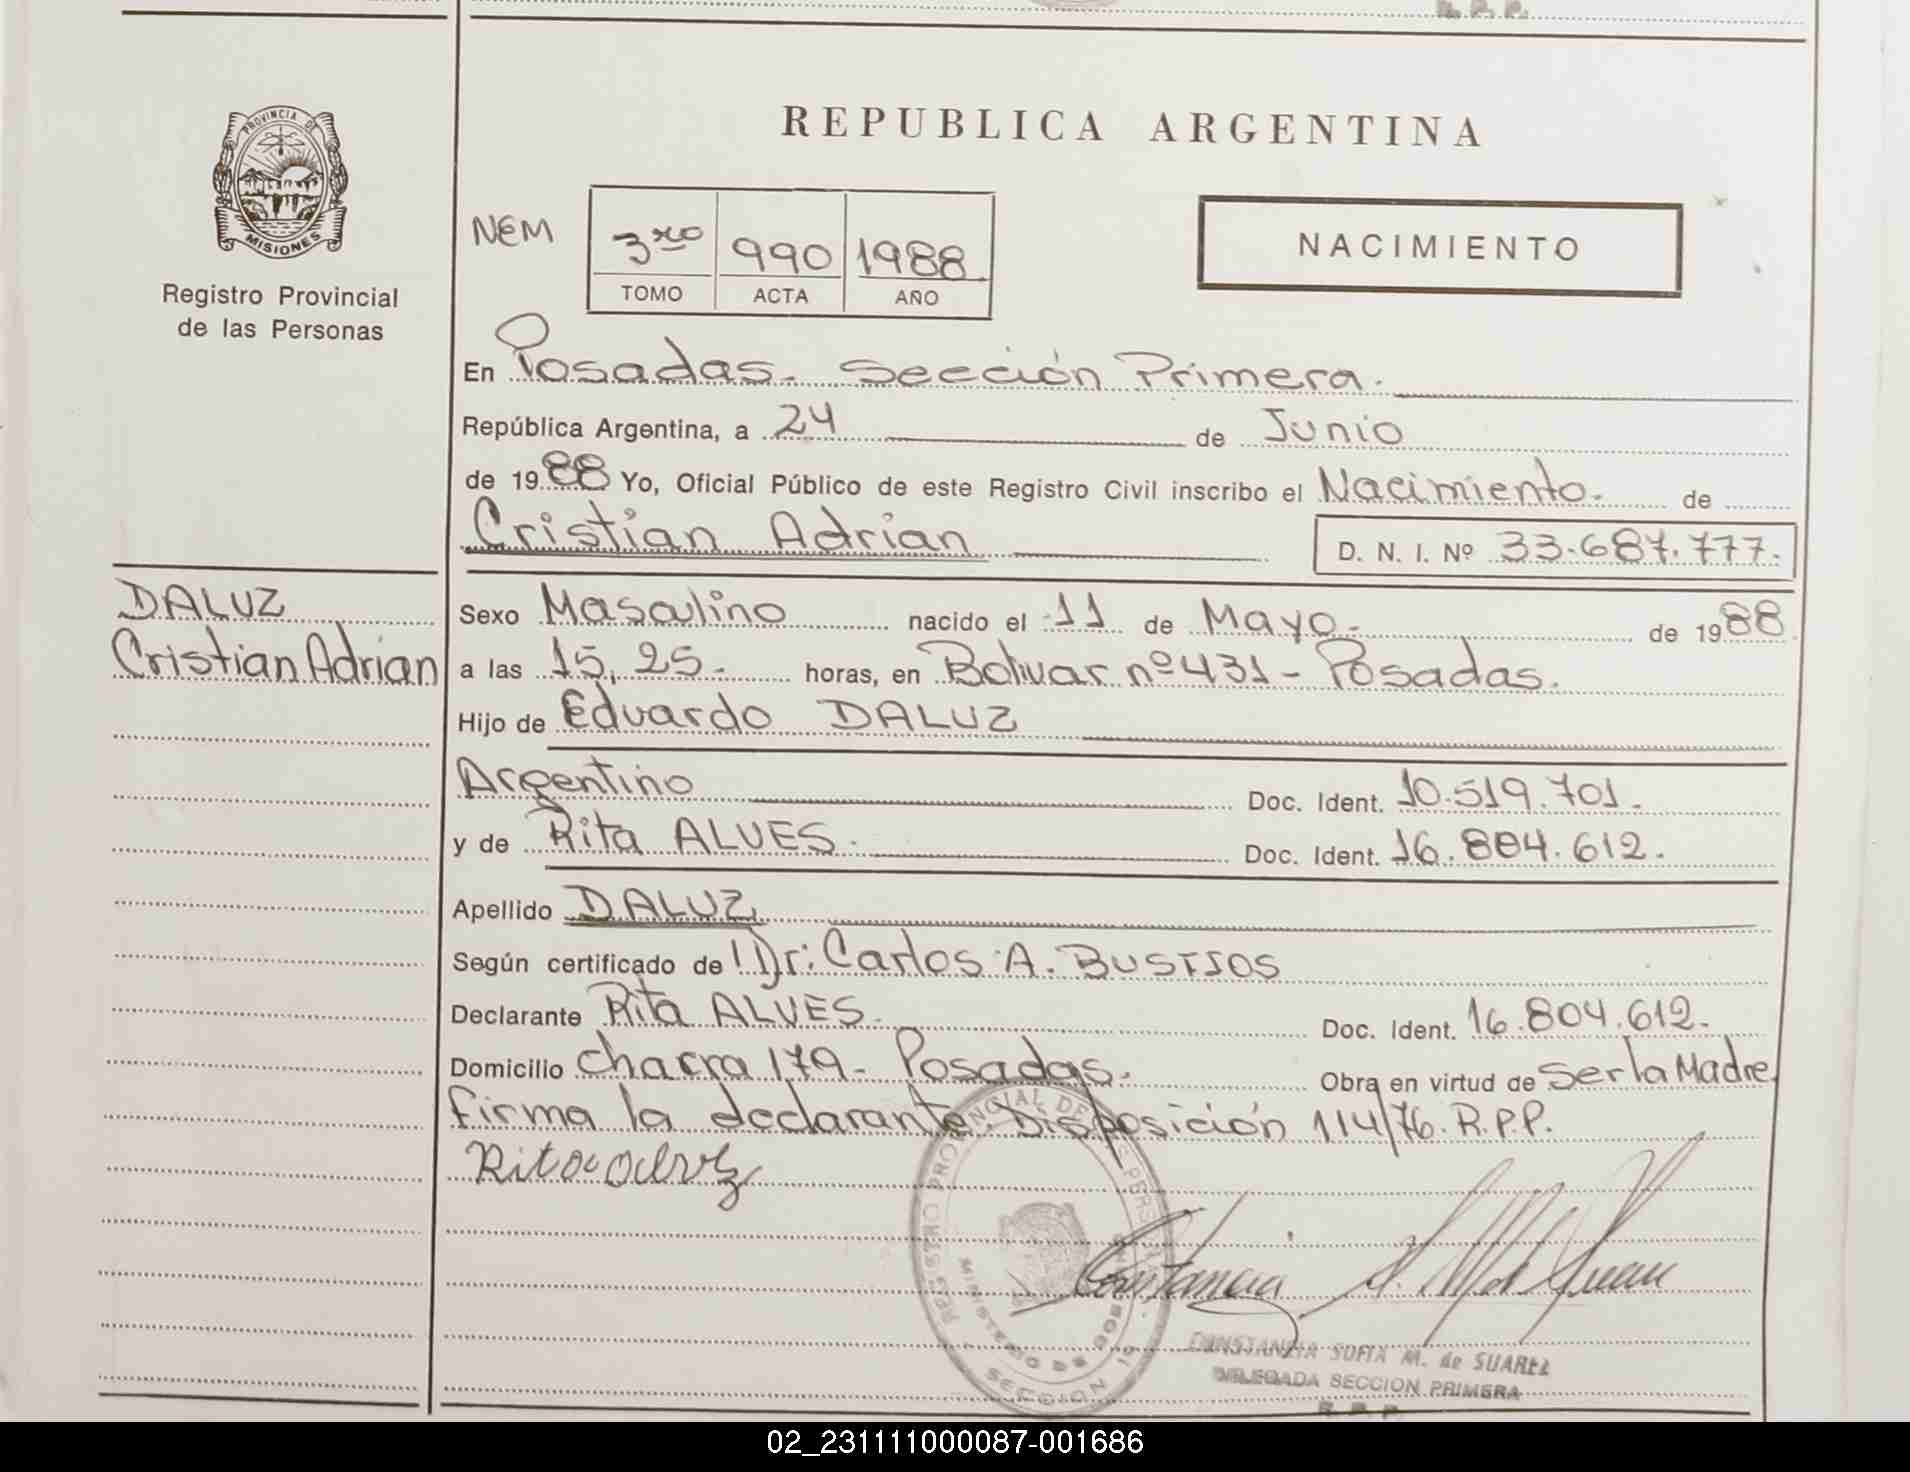 R. P. P.
PROVINCIA DE
MISIONES
Registro Provincial
de las Personas
REPUBLICA ARGENTINA
NEM
3ro 990 1988
TOMO ACTA AÑO
NACIMIENTO
En Posadas. Sección Primera.
República Argentina, a 24 de Junio
de 1988 Yo, Oficial Público de este Registro Civil inscribo el Nacimiento. de
Cristian Adrian D. N. I. Nº 33.687.777.
DALUZ
Cristian Adrian
Sexo Masculino nacido el 11 de Mayo. de 1988
a las 15,25. horas, en Bolivar nº 431 - Posadas.
Hijo de Eduardo DALUZ
Argentino Doc. Ident. 10.519.701.
y de Rita ALVES. Doc. Ident. 16.804.612.
Apellido DALUZ
Según certificado de Dr: Carlos A. BUSTJOS
Declarante Rita ALVES. Doc. Ident. 16.804.612.
Domicilio chacra 179. Posadas. Obra en virtud de Ser la Madre.
Firma la declarante. Disposición 114/76. R.P.P.
Rita
REGISTRO PROVINCIAL DE LAS PERSONAS
MINISTERIO DE GOBIERNO
SECCION 1a
Constancia S. M. de Suarez
CONSTANCIA SOFIA M. de SUAREZ
DELEGADA SECCION PRIMERA
R. P. P.
02_231111000087-001686